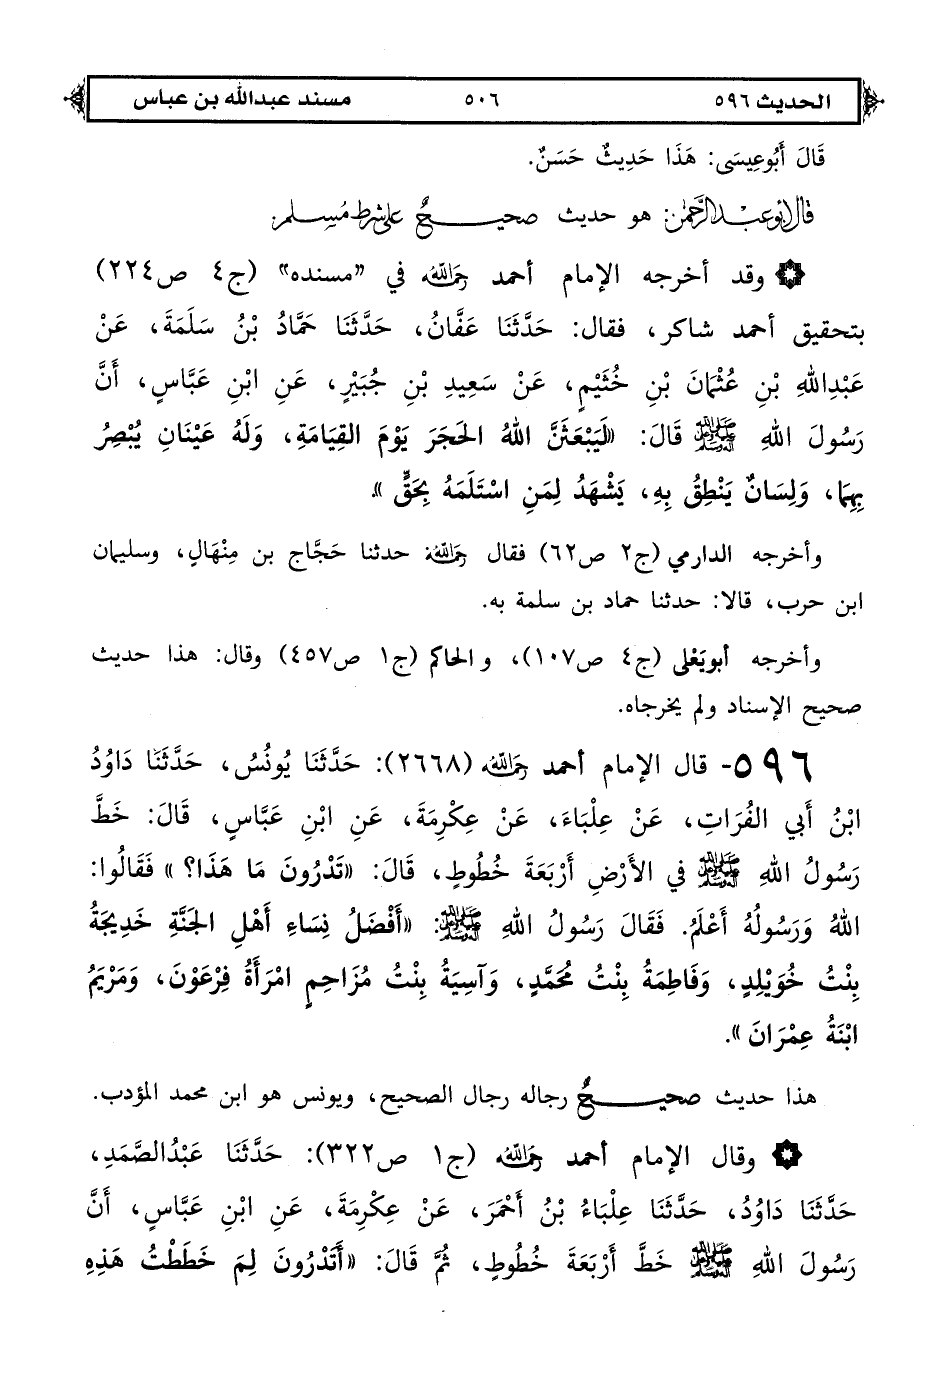 الحديث ٥٩٦ ٥٠٦ مسند عبدالله بن عباس
قَالَ أَبُوعِيسَى: هَذَا حَدِيثٌ حَسَنٌ.
قال أبو عبد الرحمن: هو حديث صحيحٌ على شرط مُسلم.
۞ وقد أخرجه الإمام أحمد رَحِمَهُ اللهُ في «مسنده» (ج٤ ص٢٢٤)
بتحقيق أحمد شاكر، فقال: حَدَّثَنَا عَفَّانُ، حَدَّثَنَا حَمَّادُ بْنُ سَلَمَةَ، عَنْ
عَبْدِاللهِ بْنِ عُثْمَانَ بْنِ خُثَيْمٍ، عَنْ سَعِيدِ بْنِ جُبَيْرٍ، عَنِ ابْنِ عَبَّاسٍ، أَنَّ
رَسُولَ اللهِ ﷺ قَالَ: «لَيَبْعَثَنَّ اللهُ الحَجَرَ يَوْمَ القِيَامَةِ، وَلَهُ عَيْنَانِ يُبْصِرُ
بِهِمَا، وَلِسَانٌ يَنْطِقُ بِهِ، يَشْهَدُ لِمَنِ اسْتَلَمَهُ بِحَقٍّ».
وأخرجه الدارمي (ج٢ ص٦٢) فقال رَحِمَهُ اللهُ حدثنا حَجَّاج بن مِنْهَالٍ، وسليمان
ابن حرب، قالا: حدثنا حماد بن سلمة به.
وأخرجه أبويَعْلى (ج٤ ص١٠٧)، والحاكم (ج١ ص٤٥٧) وقال: هذا حديث
صحيح الإسناد ولم يخرجاه.
٥٩٦- قال الإمام أحمد رَحِمَهُ اللهُ (٢٦٦٨): حَدَّثَنَا يُونُسُ، حَدَّثَنَا دَاوُدُ
ابْنُ أَبي الفُرَاتِ، عَنْ عِلْبَاءَ، عَنْ عِكْرِمَةَ، عَنِ ابْنِ عَبَّاسٍ، قَالَ: خَطَّ
رَسُولُ اللهِ ﷺ في الأَرْضِ أَرْبَعَةَ خُطُوطٍ، قَالَ: «تَدْرُونَ مَا هَذَا؟» فَقَالُوا:
اللهُ وَرَسُولُهُ أَعْلَمُ. فَقَالَ رَسُولُ اللهِ ﷺ: «أَفْضَلُ نِسَاءِ أَهْلِ الجَنَّةِ خَدِيجَةُ
بِنْتُ خُوَيْلِدٍ، وَفَاطِمَةُ بِنْتُ مُحَمَّدٍ، وَآسِيَةُ بِنْتُ مُزَاحِمٍ امْرَأَةُ فِرْعَوْنَ، وَمَرْيَمُ
ابْنَةُ عِمْرَانَ».
هذا حديث صحيحٌ رجاله رجال الصحيح، ويونس هو ابن محمد المؤدب.
۞ وقال الإمام أحمد رَحِمَهُ اللهُ (ج١ ص٣٢٢): حَدَّثَنَا عَبْدُالصَّمَدِ،
حَدَّثَنَا دَاوُدُ، حَدَّثَنَا عِلْبَاءُ بْنُ أَحْمَرَ، عَنْ عِكْرِمَةَ، عَنِ ابْنِ عَبَّاسٍ، أَنَّ
رَسُولَ اللهِ ﷺ خَطَّ أَرْبَعَةَ خُطُوطٍ، ثُمَّ قَالَ: «أَتَدْرُونَ لِمَ خَطَطْتُ هَذِهِ